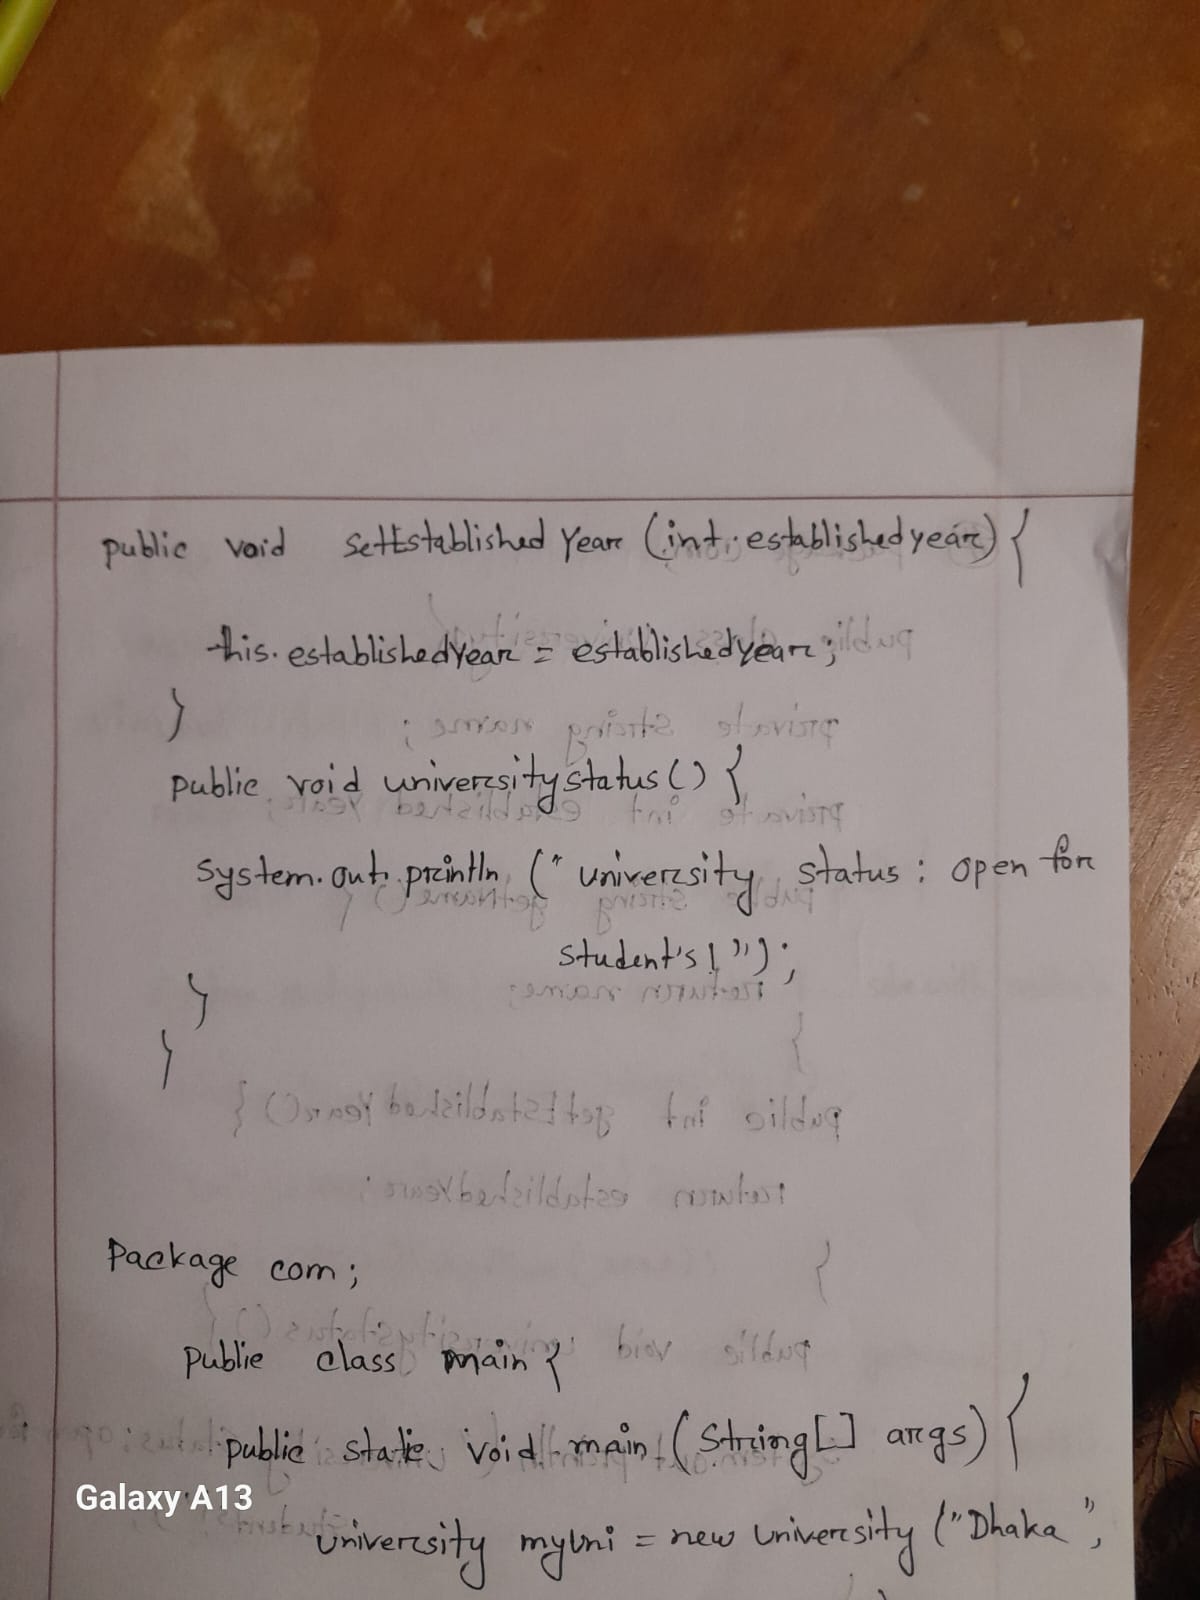 public void setEstablished Year (int establishedyear) {
this.establishedYear = establishedyear;
}
public void universitystatus() {
system.out.println (" university status : open for
student's!");
}
}
Package com;
public class main {
public static void main (String[] args) {
university myuni = new university ("Dhaka",
Galaxy A13